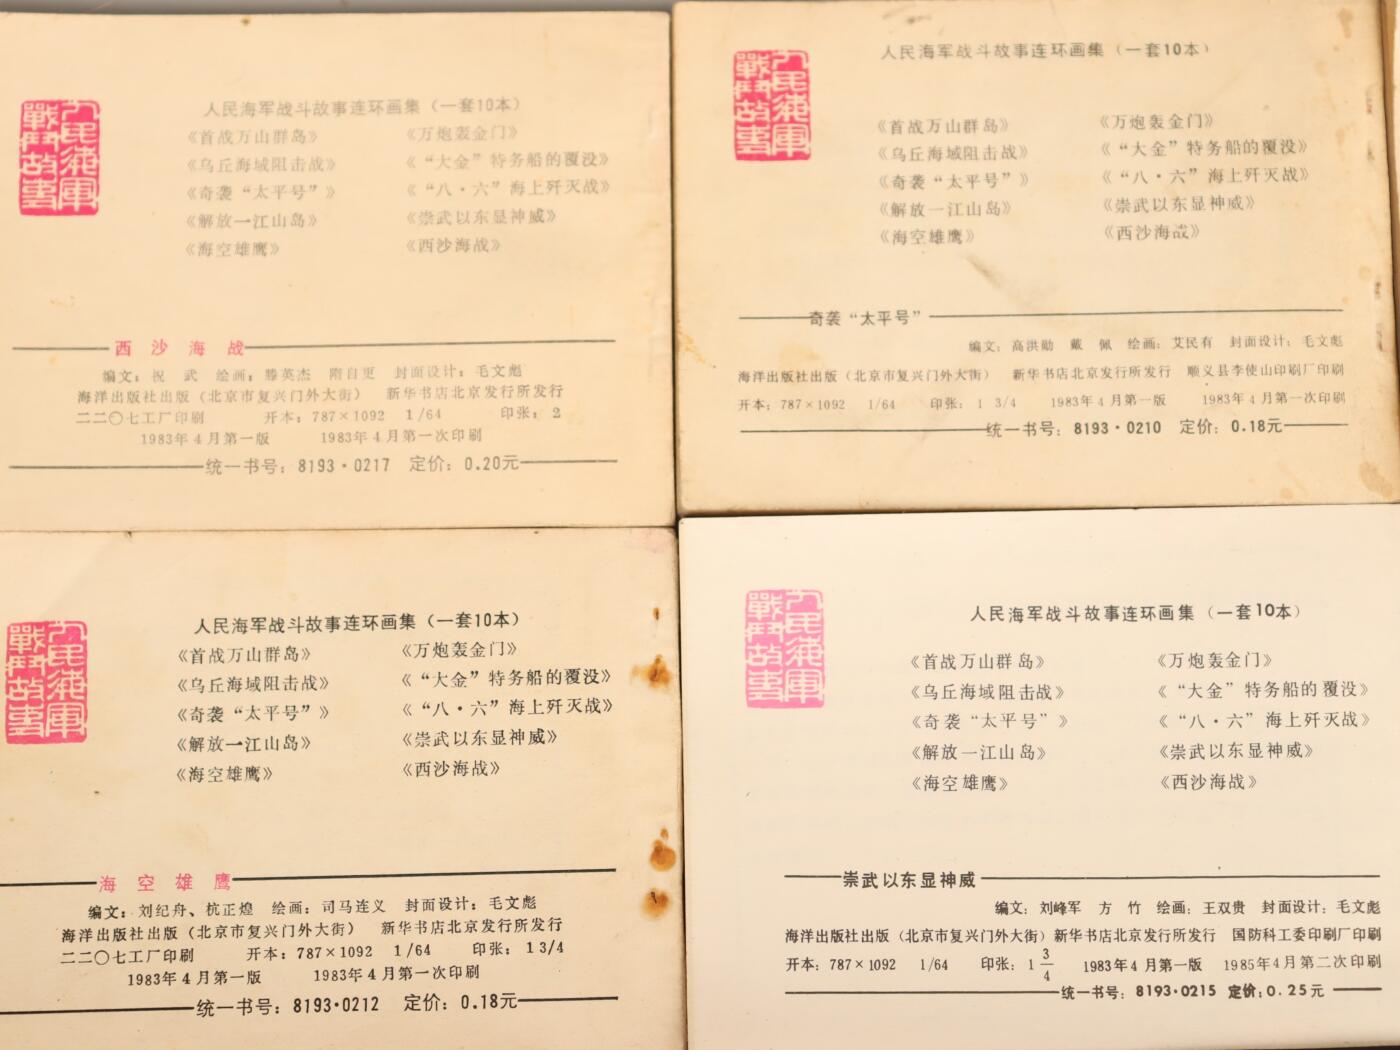 人民海军
战斗故事
人民海军战斗故事连环画集（一套10本）
《首战万山群岛》 《万炮轰金门》
《乌丘海域阻击战》 《“大金”特务船的覆没》
《奇袭“太平号”》 《“八·六”海上歼灭战》
《解放一江山岛》 《崇武以东显神威》
《海空雄鹰》 《西沙海战》
西沙海战
编文：祝 武 绘画：滕英杰 隋自更 封面设计：毛文彪
海洋出版社出版（北京市复兴门外大街） 新华书店北京发行所发行
二二〇七工厂印刷 开本：787×1092 1/64 印张：2
1983年4月第一版 1983年4月第一次印刷
统一书号：8193·0217 定价：0.20元
人民海军
战斗故事
人民海军战斗故事连环画集（一套10本）
《首战万山群岛》 《万炮轰金门》
《乌丘海域阻击战》 《“大金”特务船的覆没》
《奇袭“太平号”》 《“八·六”海上歼灭战》
《解放一江山岛》 《崇武以东显神威》
《海空雄鹰》 《西沙海战》
奇袭“太平号”
编文：高洪勋 戴 佩 绘画：艾民有 封面设计：毛文彪
海洋出版社出版（北京市复兴门外大街） 新华书店北京发行所发行 顺义县李使山印刷厂印刷
开本：787×1092 1/64 印张：1 3/4 1983年4月第一版 1983年4月第一次印刷
统一书号：8193·0210 定价：0.18元
人民海军
战斗故事
人民海军战斗故事连环画集（一套10本）
《首战万山群岛》 《万炮轰金门》
《乌丘海域阻击战》 《“大金”特务船的覆没》
《奇袭“太平号”》 《“八·六”海上歼灭战》
《解放一江山岛》 《崇武以东显神威》
《海空雄鹰》 《西沙海战》
海空雄鹰
编文：刘纪舟、杭正煌 绘画：司马连义 封面设计：毛文彪
海洋出版社出版（北京市复兴门外大街） 新华书店北京发行所发行
二二〇七工厂印刷 开本：787×1092 1/64 印张：1 3/4
1983年4月第一版 1983年4月第一次印刷
统一书号：8193·0212 定价：0.18元
人民海军
战斗故事
人民海军战斗故事连环画集（一套10本）
《首战万山群岛》 《万炮轰金门》
《乌丘海域阻击战》 《“大金”特务船的覆没》
《奇袭“太平号”》 《“八·六”海上歼灭战》
《解放一江山岛》 《崇武以东显神威》
《海空雄鹰》 《西沙海战》
崇武以东显神威
编文：刘峰军 方 竹 绘画：王双贵 封面设计：毛文彪
海洋出版社出版（北京市复兴门外大街）新华书店北京发行所发行 国防科工委印刷厂印刷
开本：787×1092 1/64 印张：1 3/4 1983年4月第一版 1985年4月第二次印刷
统一书号：8193·0215 定价：0.25元